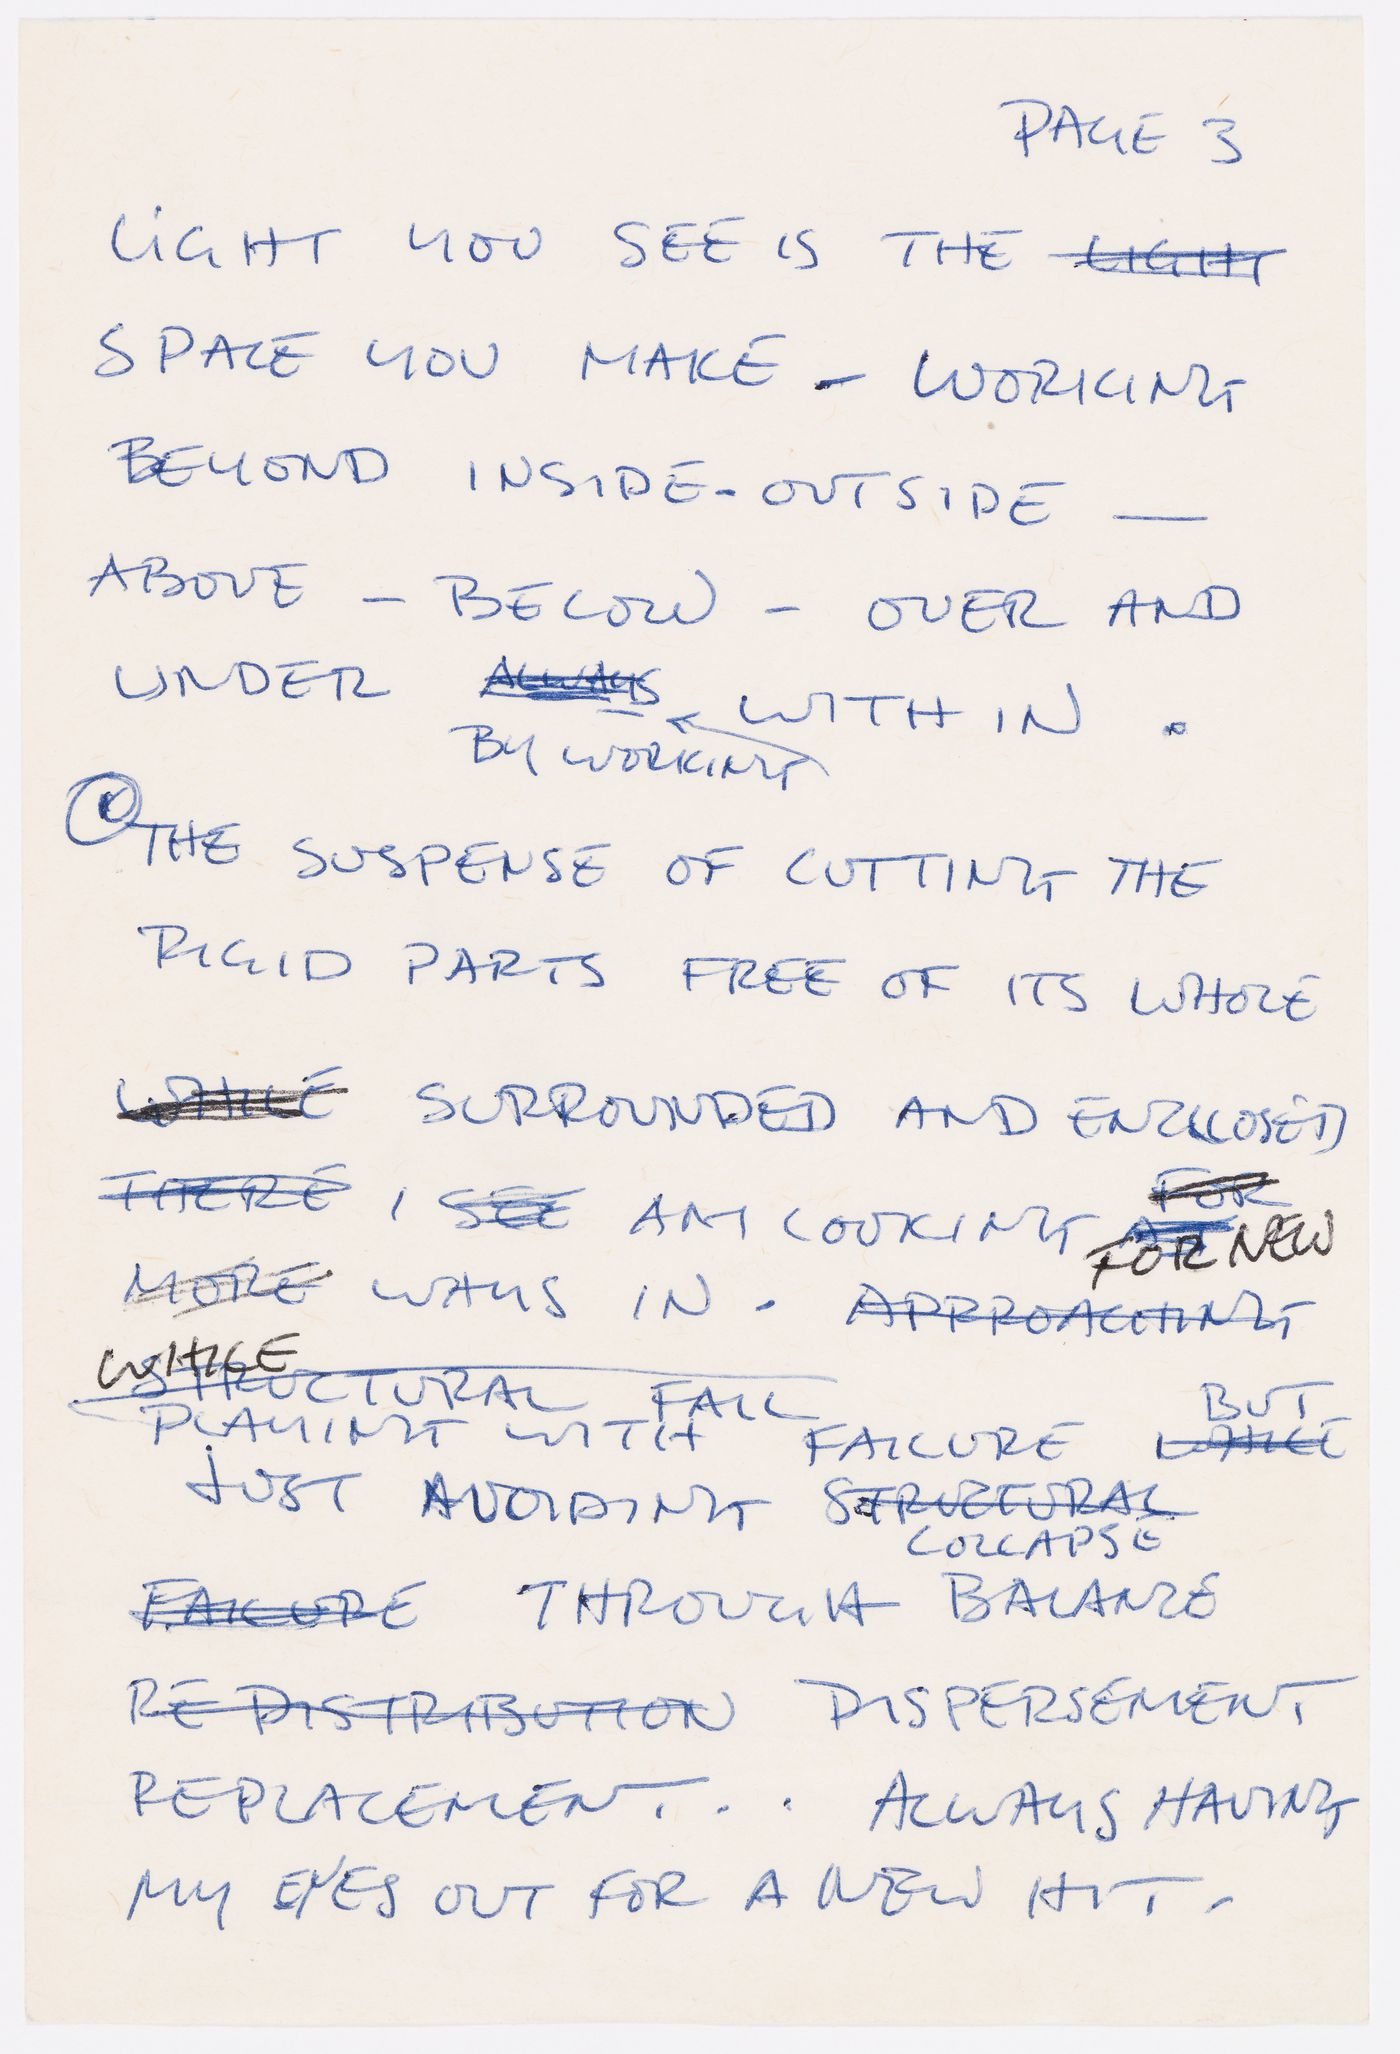 PAGE 3
LIGHT YOU SEE IS THE LIGHT
SPACE YOU MAKE – WORKING
BEYOND INSIDE-OUTSIDE —
ABOVE – BELOW – OVER AND
UNDER ALWAYS WITHIN.
BY WORKING
THE SUSPENSE OF CUTTING THE
RIGID PARTS FREE OF ITS WHOLE
WHILE SURROUNDED AND ENCLOSED
FOR
THERE I SEE AM LOOKING AT
FOR NEW
MORE WAYS IN. APPROACHING
WHILE
STRUCTURAL FAIL
BUT
PLAYING WITH FAILURE WHILE
JUST AVOIDING STRUCTURAL
COLLAPSE
FAILURE THROUGH BALANCE
REDISTRIBUTION DISPERSEMENT
REPLACEMENT... ALWAYS HAVING
MY EYES OUT FOR A NEW HIT.